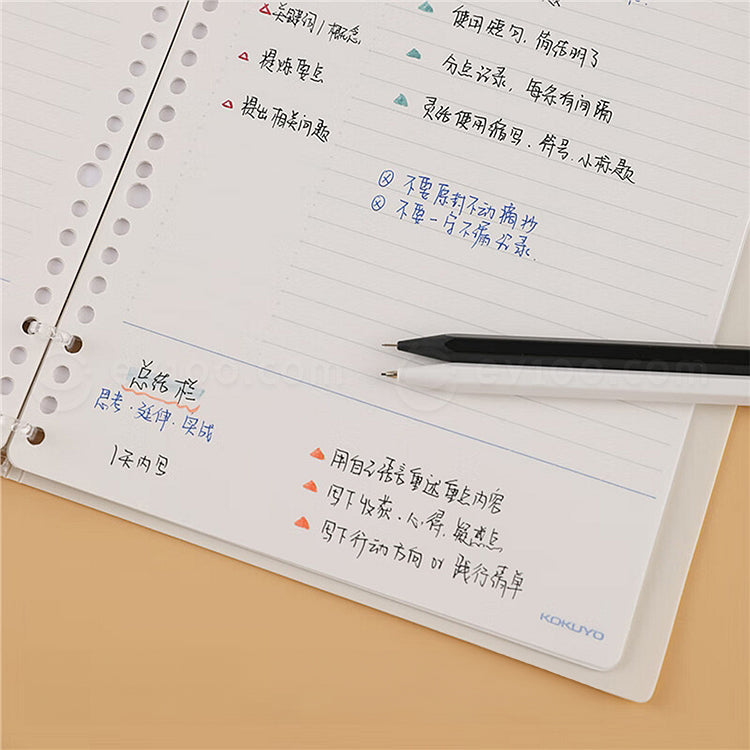 关键词/概念
提炼要点
提出相关问题
使用短句,简洁明了
分点记录,每条有间隔
灵活使用缩写、符号、小标题
不要原封不动摘抄
不要一字不漏记录.
总结栏
思考·延伸·实战
1天内写
用自己语言重述重点内容
写下收获、心得、疑惑点
写下行动方向 or 践行清单
KOKUYO